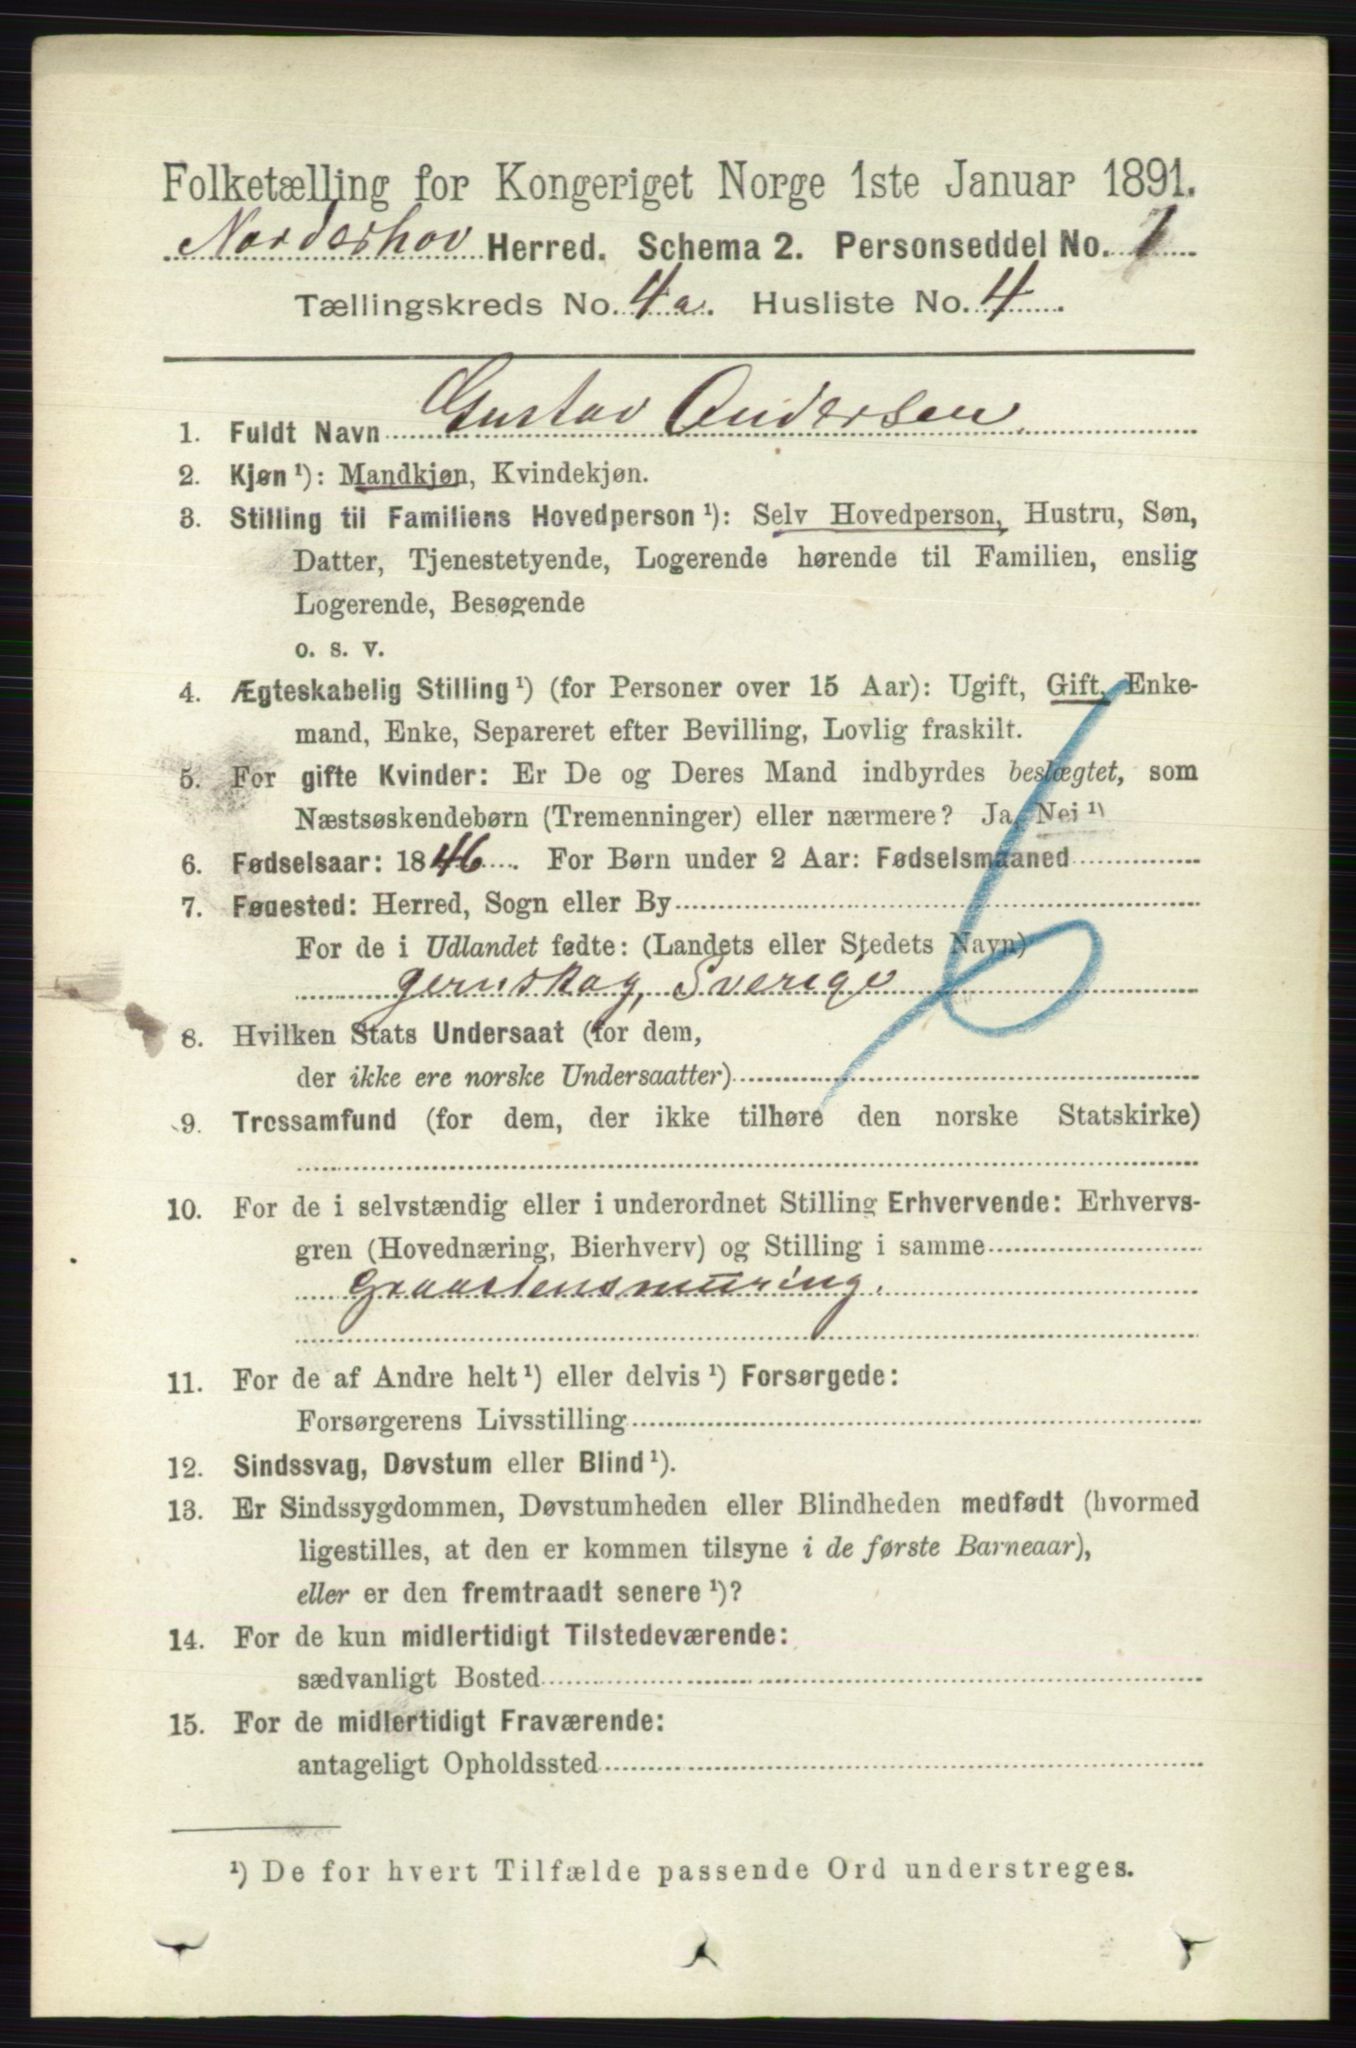 Folketælling for Kongeriget Norge 1ste Januar 1891.
Norderhov Herred. Schema 2. Personseddel No. 1
Tællingskreds No. 4a. Husliste No. 4
1. Fuldt Navn Gustav Andersen
2. Kjøn ¹): Mandkjøn, Kvindekjøn.
3. Stilling til Familiens Hovedperson ¹): Selv Hovedperson, Hustru, Søn,
Datter, Tjenestetyende, Logerende hørende til Familien, enslig
Logerende, Besøgende
o. s. v.
4. Ægteskabelig Stilling ¹) (for Personer over 15 Aar): Ugift, Gift, Enke-
mand, Enke, Separeret efter Bevilling, Lovlig fraskilt.
5. For gifte Kvinder: Er De og Deres Mand indbyrdes beslægtet, som
Næstsøskendebørn (Tremenninger) eller nærmere? Ja, Nei ¹)
6. Fødselsaar: 1846. For Børn under 2 Aar: Fødselsmaaned
7. Føuested: Herred, Sogn eller By
For de i Udlandet fødte: (Landets eller Stedets Navn)
gernskog, Sverige
8. Hvilken Stats Undersaat (for dem,
der ikke ere norske Undersaatter)
9. Trossamfund (for dem, der ikke tilhøre den norske Statskirke)
10. For de i selvstændig eller i underordnet Stilling Erhvervende: Erhvervs-
gren (Hovednæring, Bierhverv) og Stilling i samme
Graastensmuring.
11. For de af Andre helt ¹) eller delvis ¹) Forsørgede:
Forsørgerens Livsstilling
12. Sindssvag, Døvstum eller Blind ¹).
13. Er Sindssygdommen, Døvstumheden eller Blindheden medfødt (hvormed
ligestilles, at den er kommen tilsyne i de første Barneaar),
eller er den fremtraadt senere ¹)?
14. For de kun midlertidigt Tilstedeværende:
sædvanligt Bosted
15. For de midlertidigt Fraværende:
antageligt Opholdssted
¹) De for hvert Tilfælde passende Ord understreges.